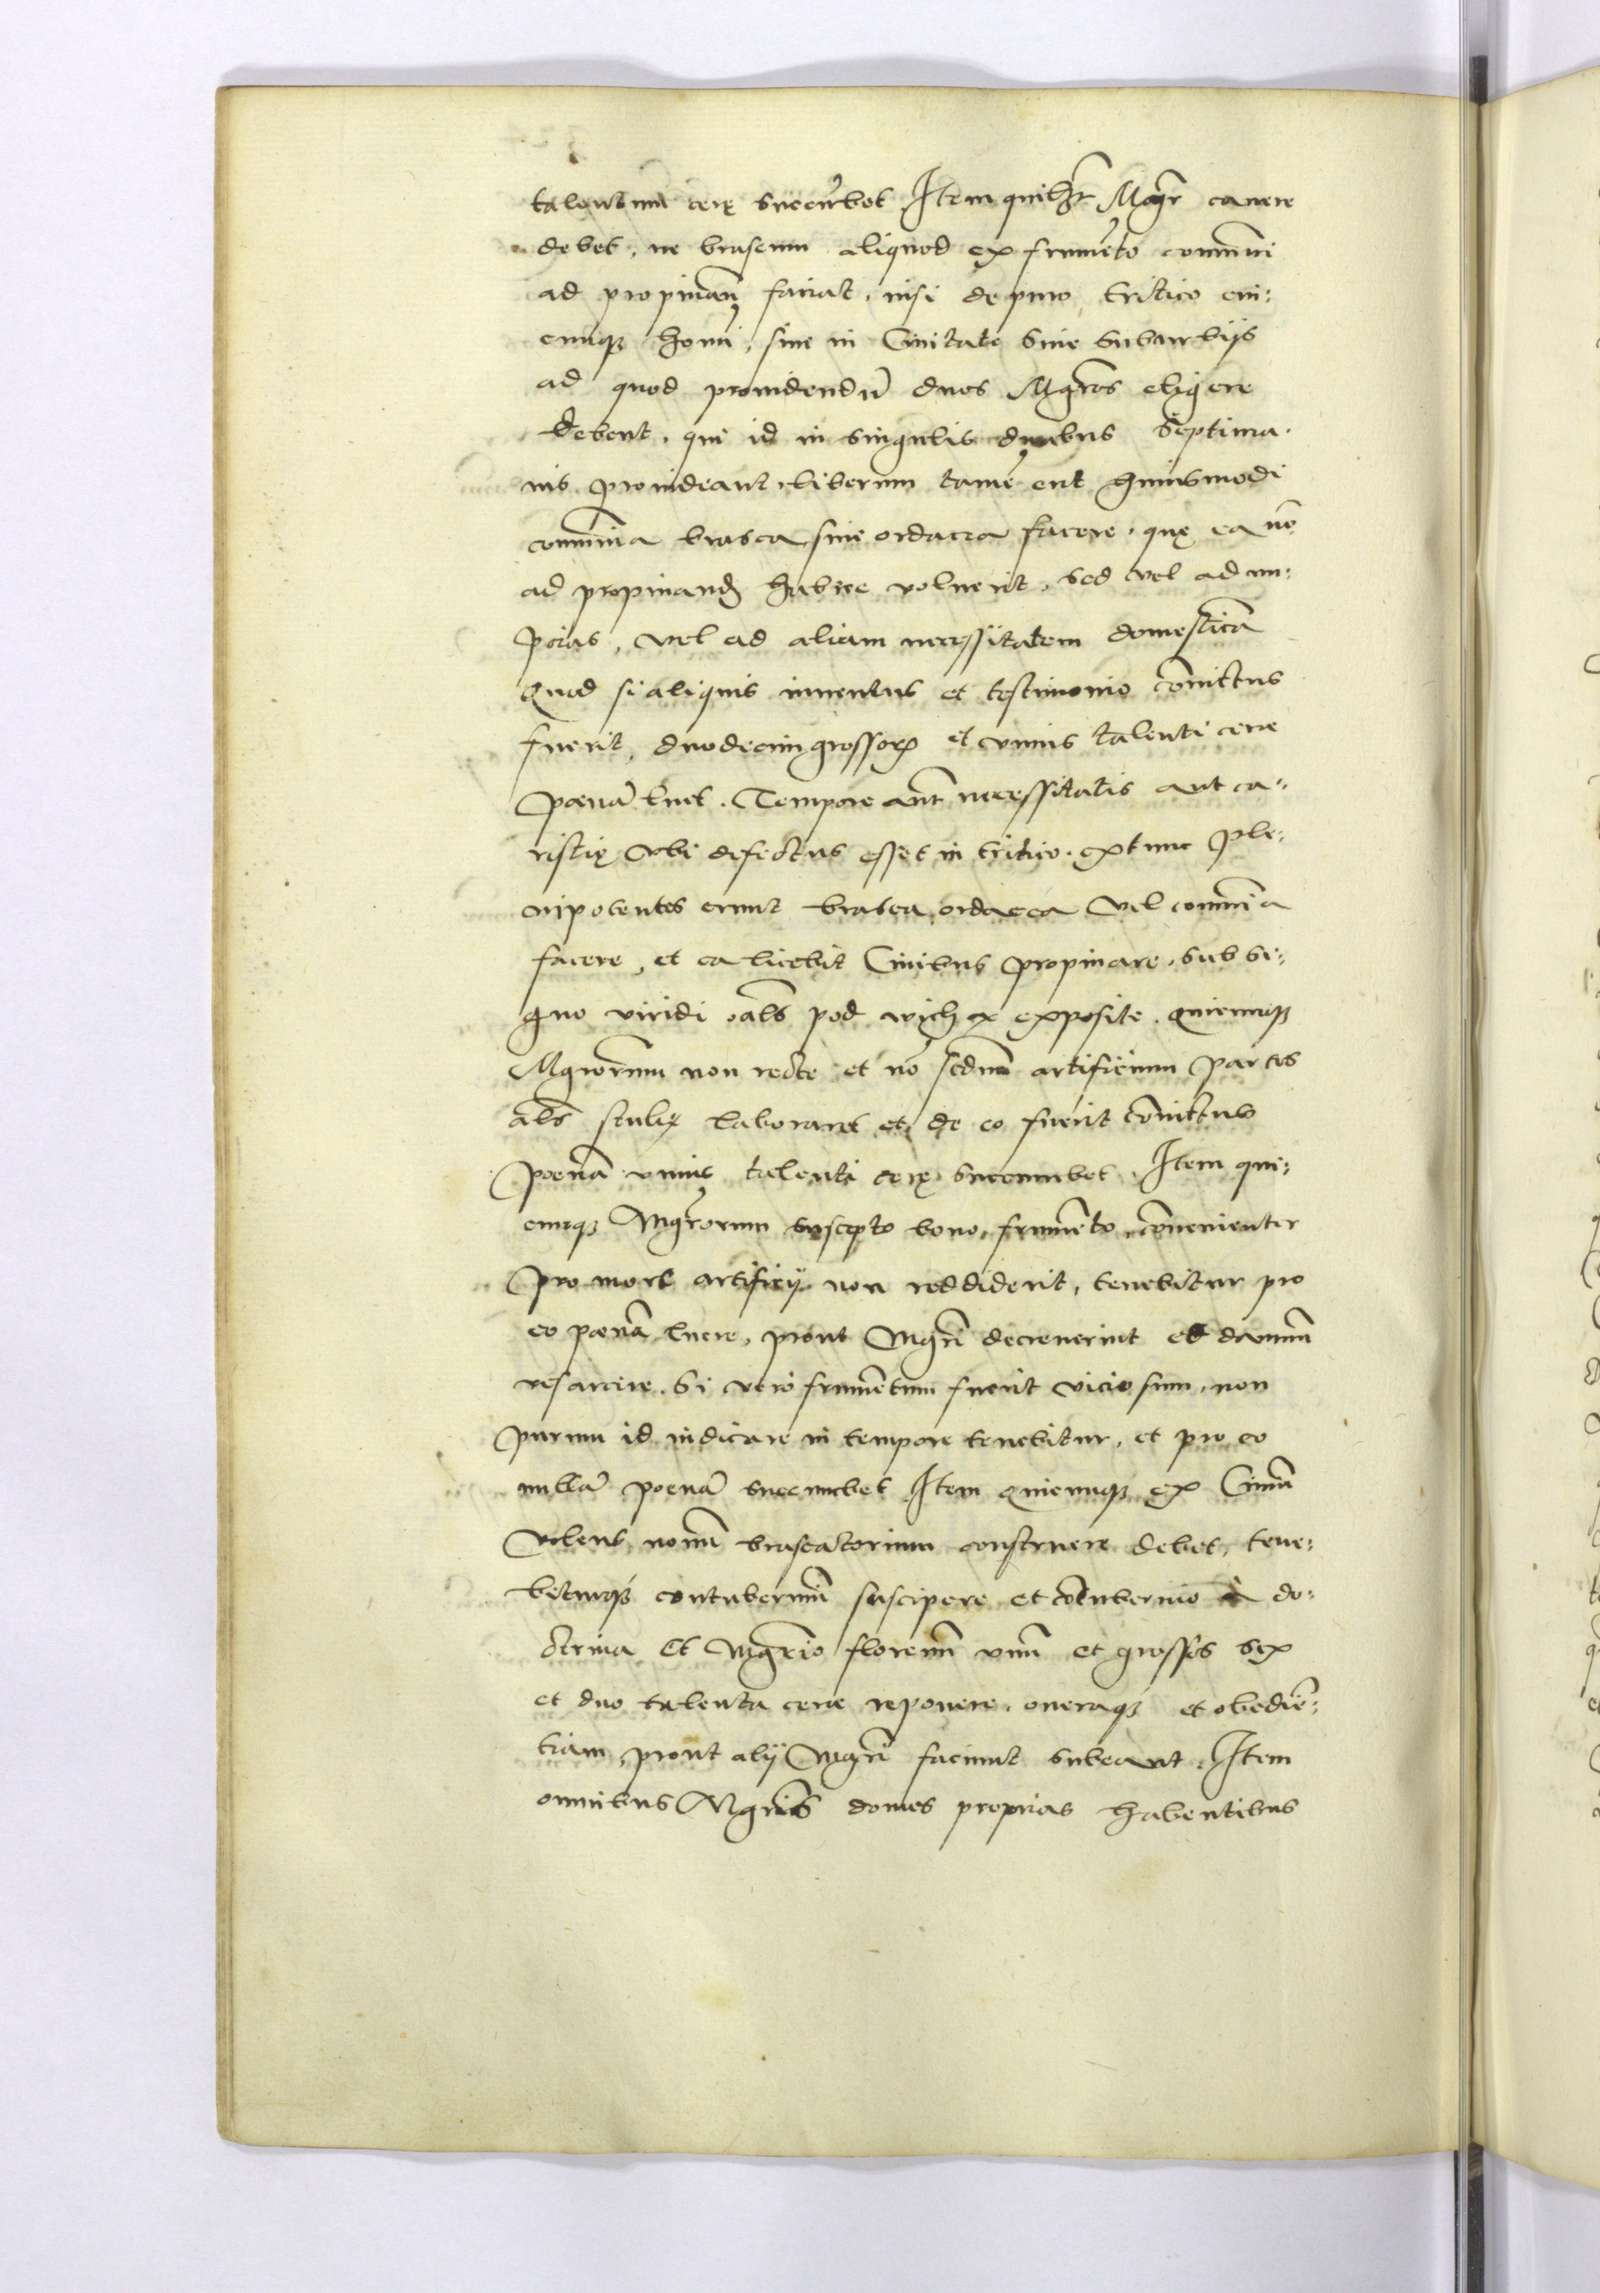 talentum cerę succu͂bet Item quilib͂t Mgr͂ cauere
debet, ne braseum aliquod ex frume͂to communi
ad propinan͂ faciat, nisi de puro tritico cui:
cumq homi, siue in Ciuitate siue suburbijs
ad quod prouidendu͂ duos Mgr͂os eligere
debent, qui id in singulis duabus septima.
nis prouideant, liberum tame͂ erit huiusmodi
commu͂ia brasea siue ordacea facere, quę ea no͂
ad propinand habere voluerit, sed vel ad nu:
ptias, vel ad aliam necessitatem domestica͂
Quod si aliquis inuentus et testimonio co͂uictus
fuerit, duodecim grossorꝝ et vnius talenti cere
poena͂ luet. Tempore aut͂ necessitatis aut ca:
ristię vbi defectus esset in tritico, extunc ple:
nipotentes erunt brasea ordacea vel commu͂ia
facere, et ea licebit Ciuibus propinare, sub si:
gno viridi al͂s pod wiecha exposite. Quicumq
Mgrorum non recte et no͂ secdum͂ artificium partes
al͂s laboraret et de eo fuerit co͂uictus
poena͂ vnius talenti cerę succumbet. Item qui:
cumq Mgr͂orum suscepto bono frume͂to co͂uenienter
pro more artificij non reddiderit, tenebitur pro
eo poena͂ luere, prout Mgr͂i decreuerint et damnum͂
resarcire. Si vero frume͂tum fuerit viciosum, non
purum id indicare in tempore tenebitur, et pro eo
nulla͂ poena͂ succumbet Item Quicumq ex Ciuiu͂
volens nouu͂ braseatorium construere debet, tene:
biturq contuberniu͂ suscipere et co͂tubernio a do:
ctrina Et Mgr͂io florenu͂ vnu͂ et grossos sex
et duo talenta cere reponere, oneraq et obedie͂:
tiam, prout alij Mgr͂i faciunt subeant. Item
omnibus Mgr͂is domos proprias habentibus